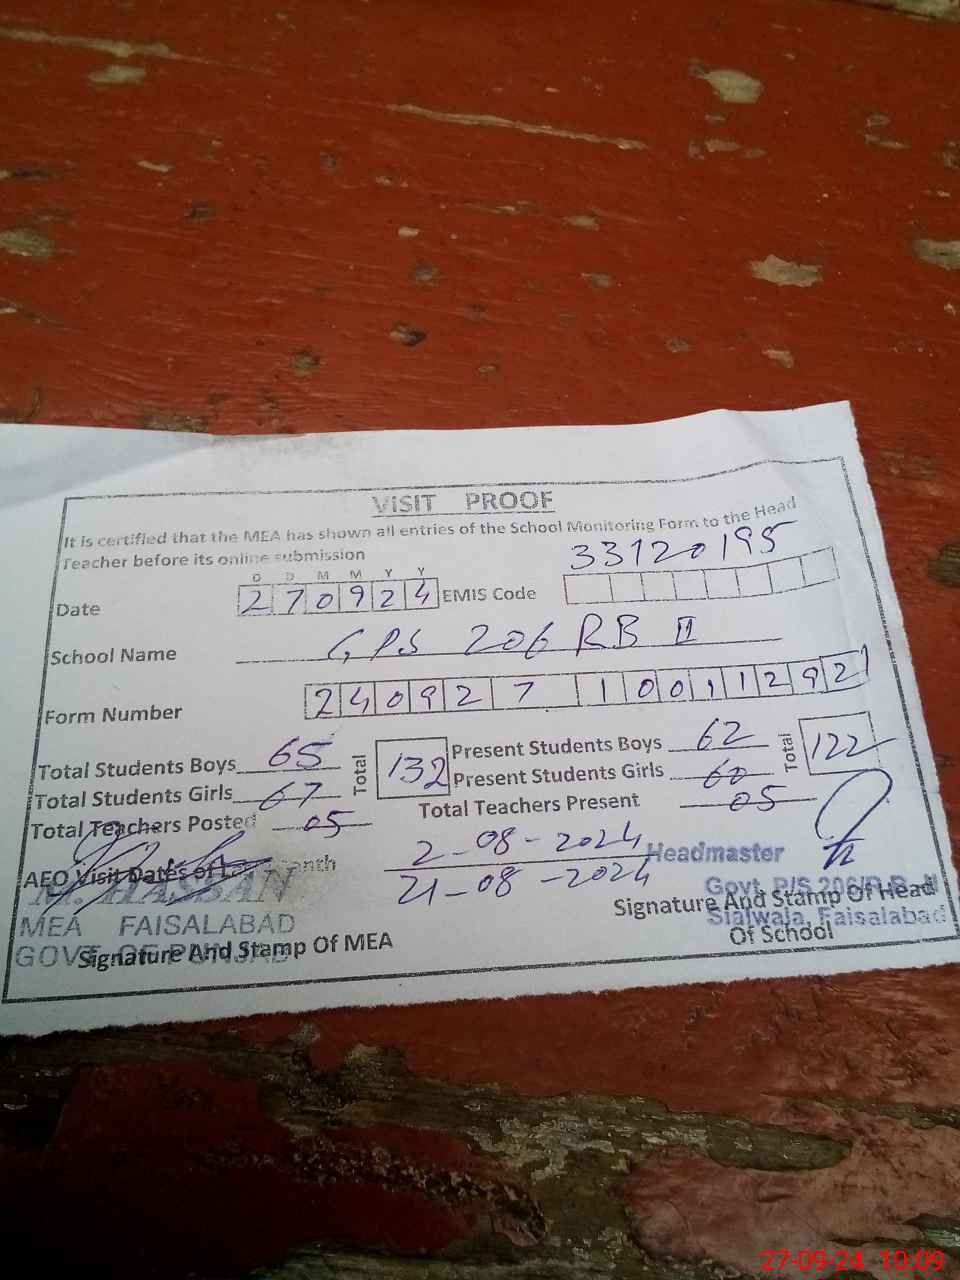 VISIT PROOF
It is certified that the MEA has shown all entries of the School Monitoring Form to the Head
Teacher before its online submission
33120195
D D M M Y Y
Date 270924 EMIS Code
School Name GPS 206 RB II
Form Number 240927 100112921
Total Students Boys 65 Total 132 Present Students Boys 62 Total 122
Total Students Girls 67 Present Students Girls 60
Total Teachers Posted 05 Total Teachers Present 05
AEO Visit Dates of Last Month 2-08-2024
21-08-2024
Headmaster
Govt. P/S 206/R.B. II
Sialwala, Faisalabad
Signature And Stamp Of Head
Of School
M. HASSAN
MEA FAISALABAD
GOVT. OF PUNJAB
Signature And Stamp Of MEA
27-09-24 10:09